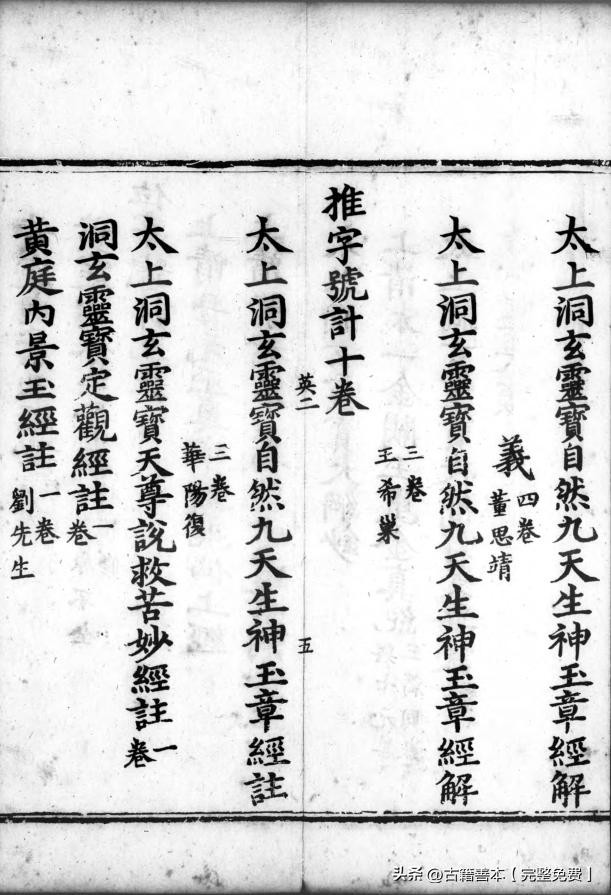 太上洞玄靈寶自然九天生神玉章經解
義 四卷 董思靖
太上洞玄靈寶自然九天生神玉章經解
三卷 王希巢
推字號計十卷
英二
五
太上洞玄靈寶自然九天生神玉章經註
三卷 華陽復
太上洞玄靈寶天尊說救苦妙經註一卷
洞玄靈寶定觀經註一卷
黃庭內景玉經註一卷 劉先生
头条 @古籍善本【完整免费】